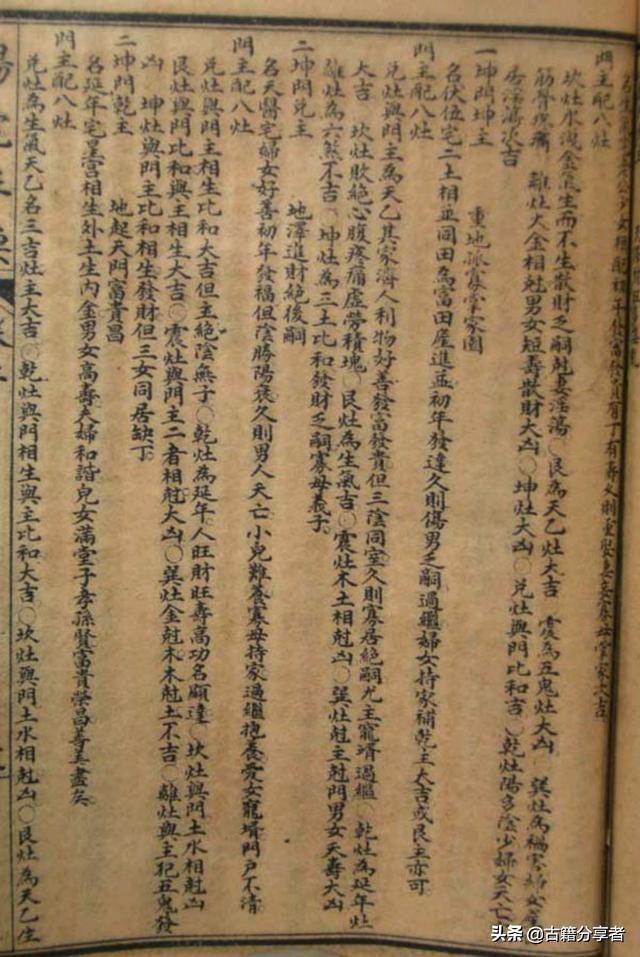 門主配八灶
坎灶水洩金氣生而不生散財乏嗣尅妻淫蕩○艮為天乙灶大吉 震為五鬼灶大凶○巽灶為禍害婦女
筋骨疼痛 離灶火金相尅男女短壽散財大凶○坤灶大凶○兌灶與門比和吉○乾灶陽多陰少婦女夭亡
居淫蕩次吉
一坤門坤主 重地孤寡掌家園
名伏位宅二土相並同田為富田產進益初年發達久則傷男乏嗣過繼婦女持家補乾主大吉或艮主亦可
門主配八灶
兌灶與門主為天乙其家濟人利物好善發富發貴但三陰同室久則寡居絕嗣尤主寵壻過繼 乾灶為延年灶
大吉 坎灶敗絕心腹疼痛虛勞積塊○艮灶為生氣吉○震灶木土相尅凶○巽灶尅主尅門男女夭壽大凶
離灶為六煞不吉○坤灶為三土比和發財乏嗣寡母義子○
二坤門兌主 地澤進財絕後嗣
名天醫宅婦女好善初年發福但陰勝陽衰久則男人夭亡小兒難養寡母持家過繼抱養愛女寵壻門戶不清
門主配八灶
兌灶與門主相生比和大吉但主絕陰無子○乾灶為延年人旺財旺壽高功名顯達○坎灶與門土水相尅凶
艮灶與門比和與主相生大吉○震灶與門主二者相尅大凶○巽灶金尅木木尅土不吉○離灶與主犯五鬼發
凶 坤灶與門主比和相生發財但三女同居缺丁
二坤門乾主 地起天門富貴昌
名延年宅星宮相生外土生內金男女高壽夫婦和諧兒女滿堂子孝孫賢富貴榮昌善美盡矣
門主配八灶
兌灶為生氣天乙名三吉灶主大吉○乾灶與門相生與主比和大吉○坎灶與門土水相尅凶○艮灶為天乙生
頭条 @古籍分享者